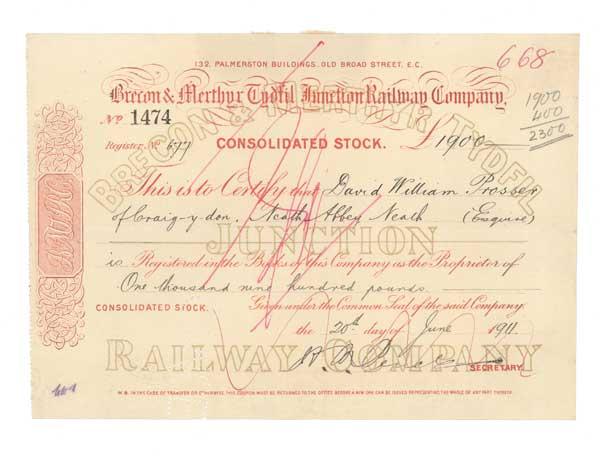 132, PALMERSTON BUILDINGS, OLD BROAD STREET, E.C.
668
Brecon & Merthyr Tydfil Junction Railway Company,
No 1474
1900
400
2300
Register. No 677
CONSOLIDATED STOCK.
£1900
BRECON & MERTHYR TYDFIL
This is to Certify that David William Prosser
of Craig-y-don, Neath Abbey Neath (Esquire)
JUNCTION
is Registered in the Books of this Company as the Proprietor of
One thousand nine hundred pounds
CONSOLIDATED STOCK. Given under the Common Seal of the said Company
the 20th day of June 1911
RAILWAY COMPANY
SECRETARY.
N.B. IN THE CASE OF TRANSFER OR OTHERWISE, THIS COUPON MUST BE RETURNED TO THE OFFICE BEFORE A NEW ONE CAN BE ISSUED REPRESENTING THE WHOLE OF ANY PART THEREOF.